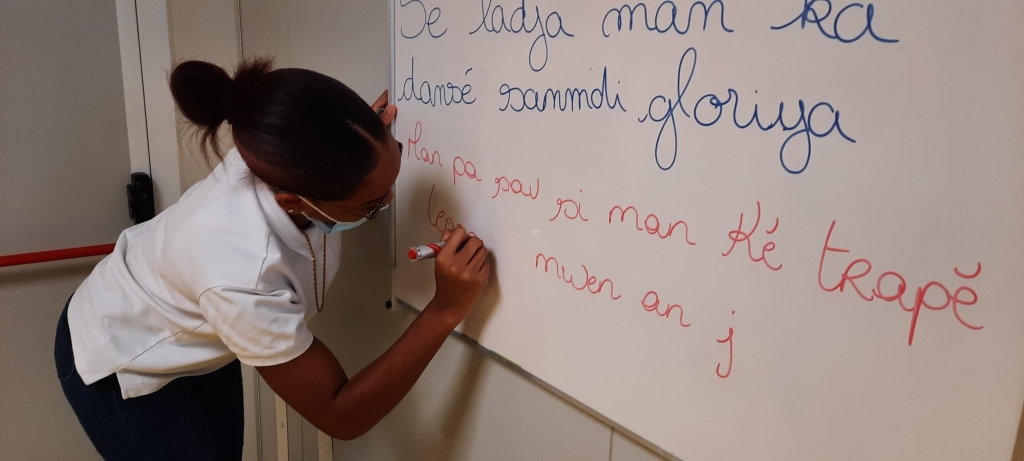 Se ladja man ka
dansé sanmdi gloriya
Man pa sav si man Ké trapĕ
mwen an j